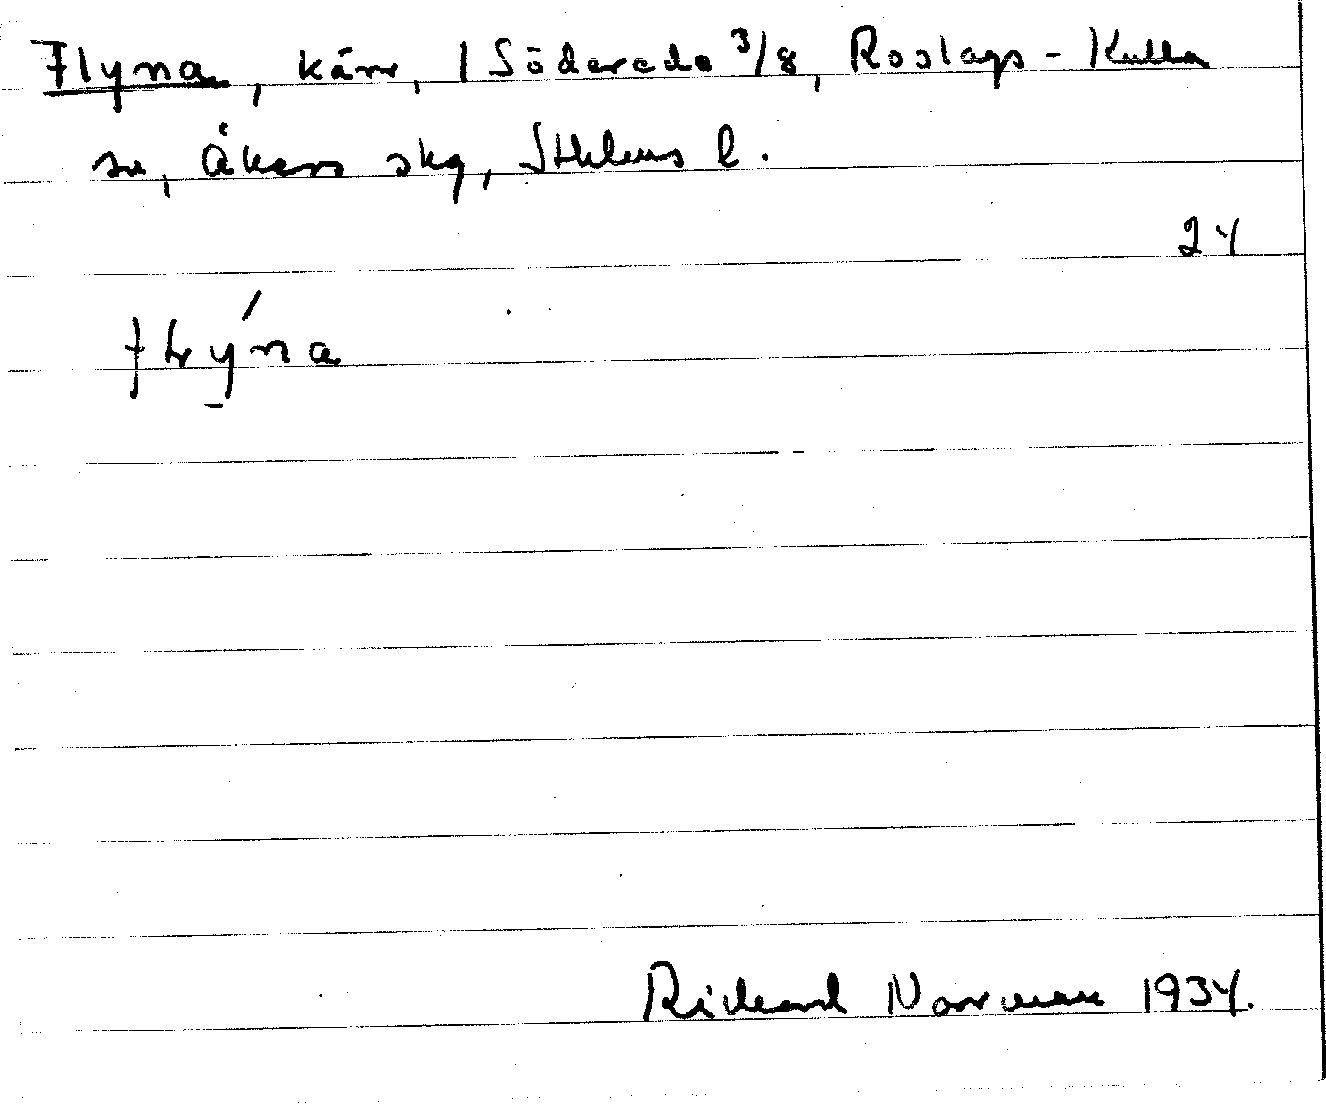 Flyna, kärr, 1 Söderede 3/8, Roslags-Kulla
sn, Åkers skg, Sthlms l.
24
flẏ́na
Rickard Norrman 1934.